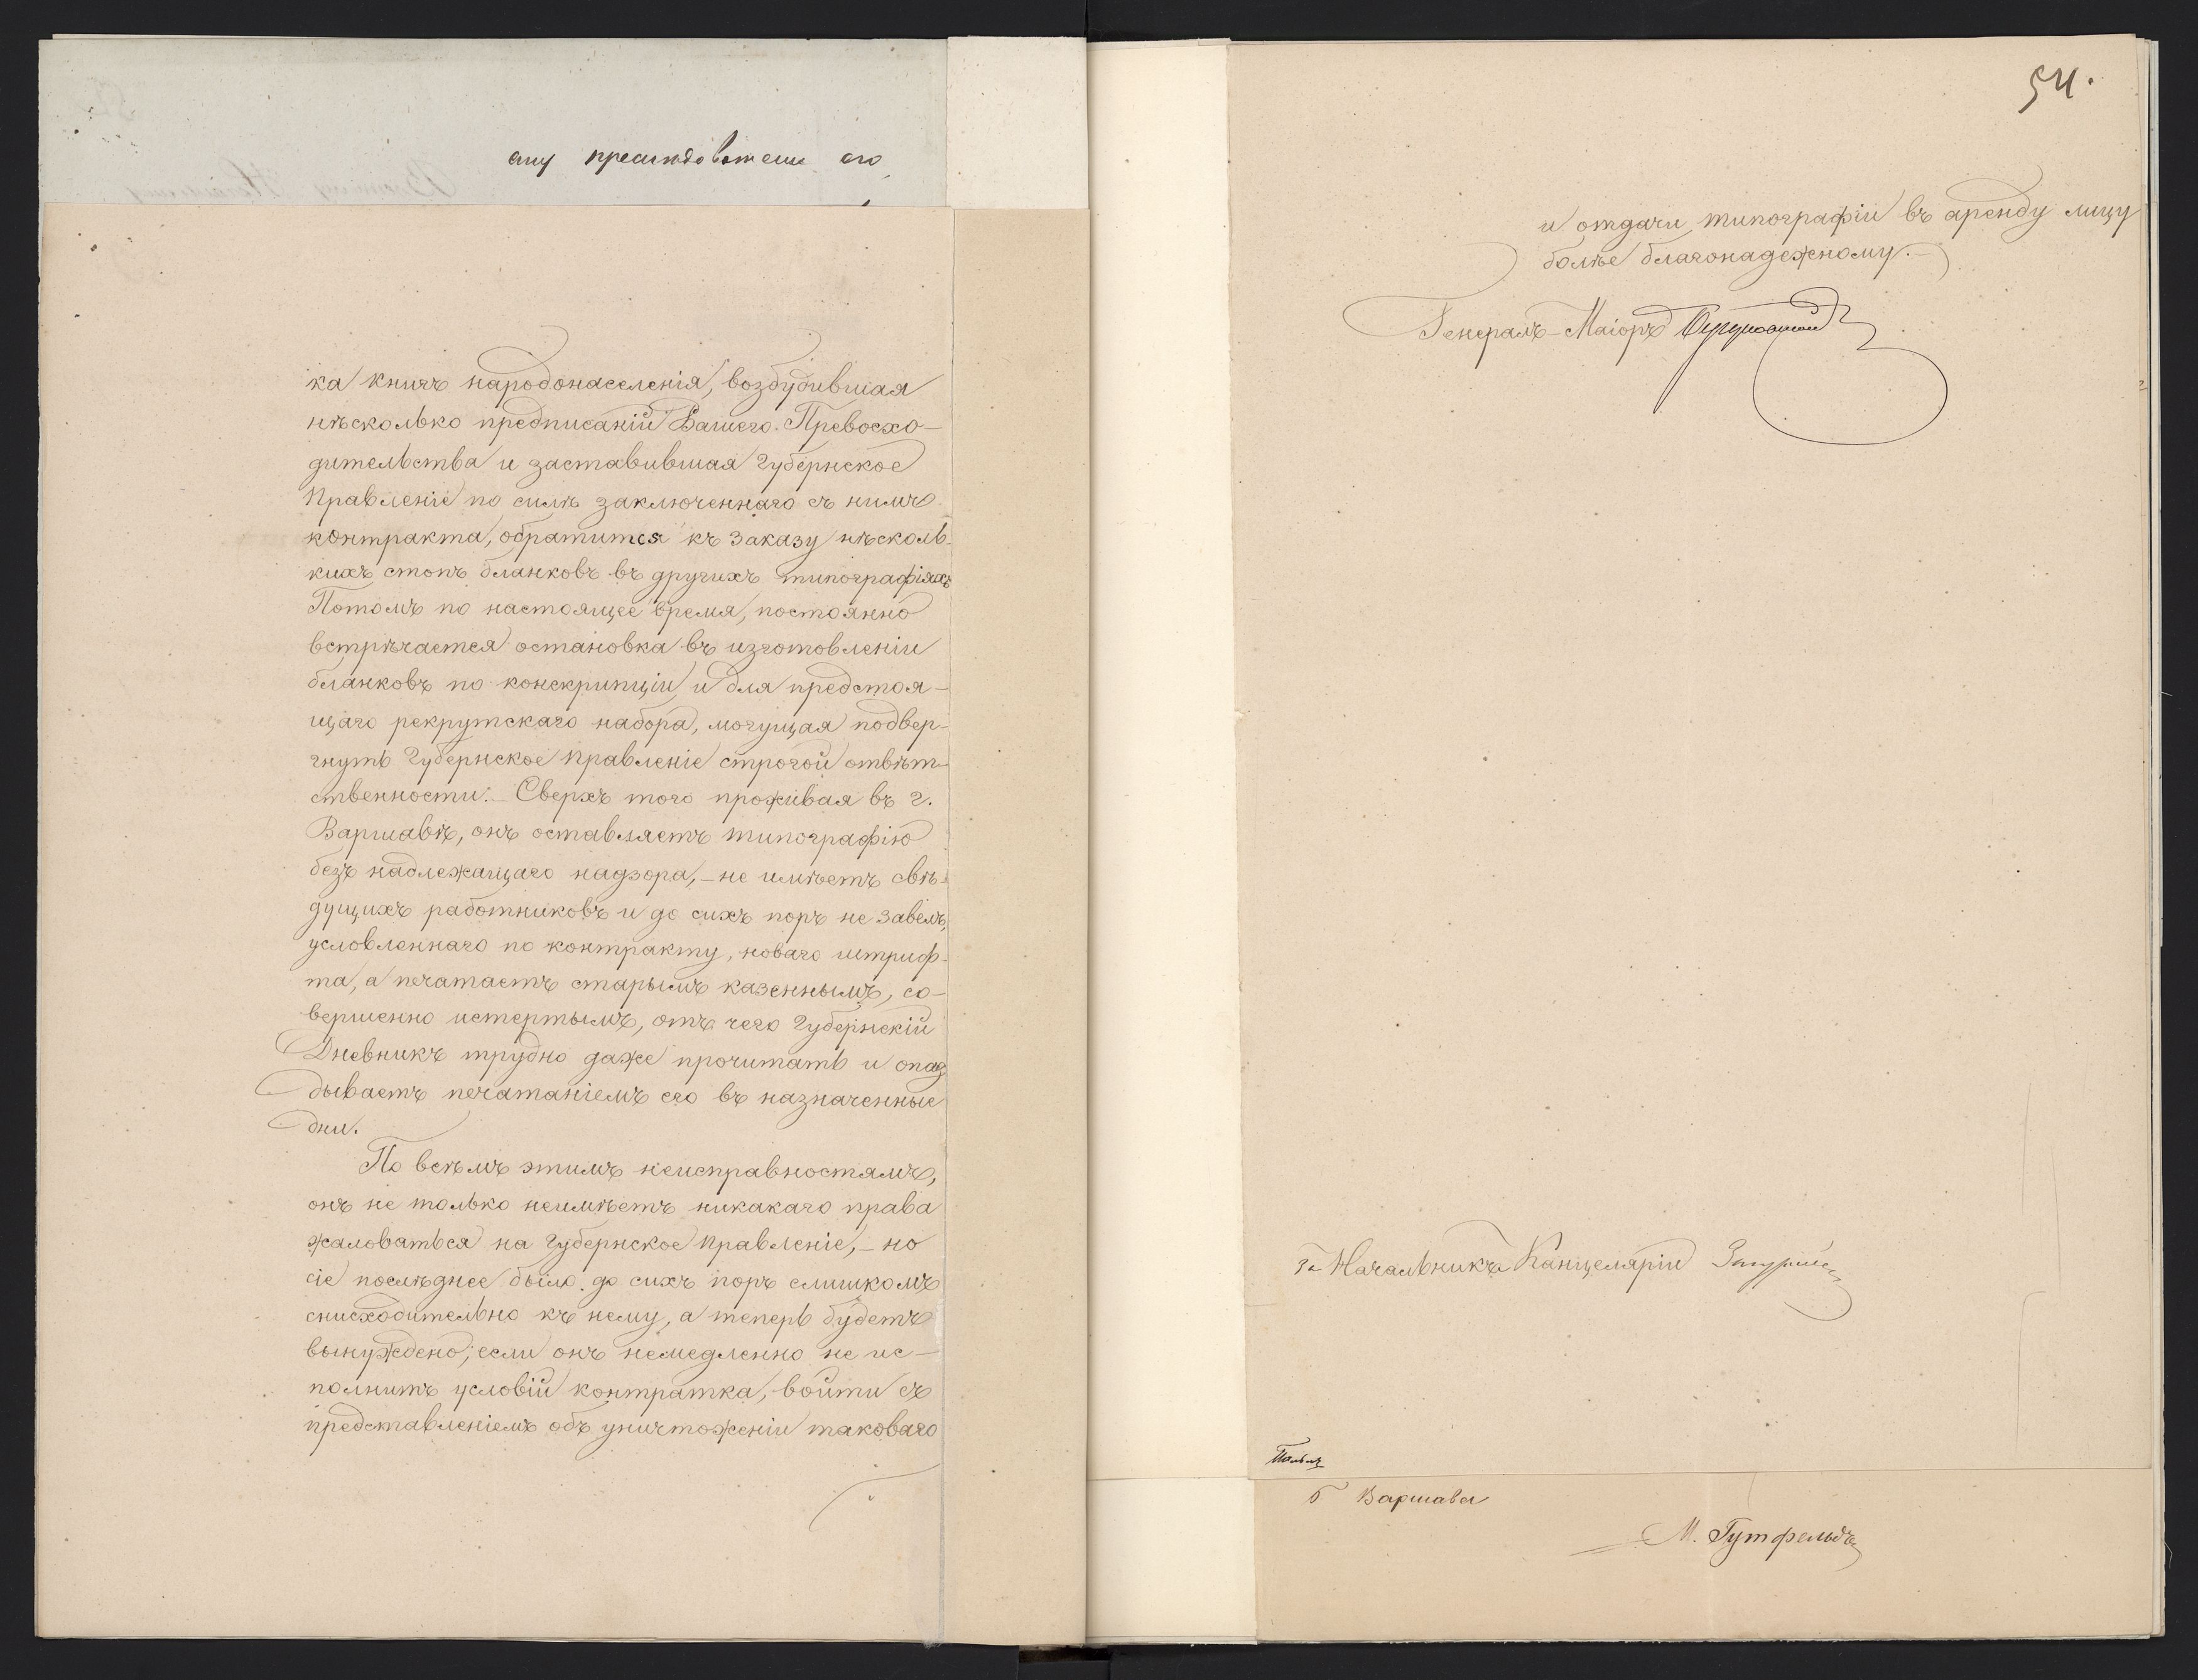 ка книгъ народонаселенія, возбудившая
нѣсколько предписаній Вашего Превосхо-
дительства и заставившая Губернское
Правленіе по силѣ заключеннаго съ нимъ
контракта, обратится къ заказу нѣсколь-
кихъ стопъ бланковъ въ другихъ типографіяхъ
Потомъ по настоящее время, постоянно
встрѣчается остановка въ изготовленіи
бланковъ по конскрипціи и для предстоя-
щаго рекрутскаго набора, могущая подвер-
гнуть Губернское Правленіе строгой отвѣт-
ственности. Сверхъ того проживая въ г.
Варшавѣ, онъ оставляетъ типографію
безъ надлежащаго надзора, - не имѣетъ свѣ-
дущихъ работниковъ и до сихъ поръ не завелъ,
условленнаго по контракту, новаго штриф-
та, а печатаетъ старымъ казеннымъ, со-
вершенно истертымъ, отъ чего Губернскій
Дневникъ трудно даже прочитать и опаз
дываетъ печатаніемъ его въ назначенные
дни.
По всѣмъ этимъ неисправностямъ,
онъ не только неимѣетъ никакаго права
жаловаться на Губернское Правленіе, - но
сіе послѣднее было до сихъ поръ слишкомъ
снисходительно къ нему, а теперь будетъ
вынуждено, если онъ немедленно не ис-
полнитъ условій контратка, войти съ
представленіемъ объ уничтоженіи таковаго
54.
и отдачи типографіи въ аренду лицу
болѣе благонадежному.
Генералъ-Маіоръ
За Начальникъ Канцеляріи
Варшава
М. Гутфельдъ